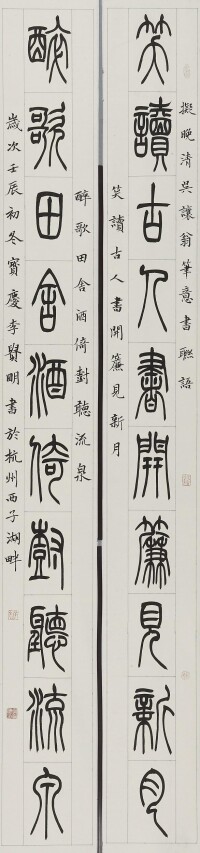 擬晚清吳讓翁筆意書聯語
笑讀古人書開簾見新月
笑讀古人書開簾見新月
醉歌田舍酒倚樹聽流泉
醉歌田舍酒倚樹聽流泉
歲次壬辰初冬寶慶李賢明書於杭州西子湖畔